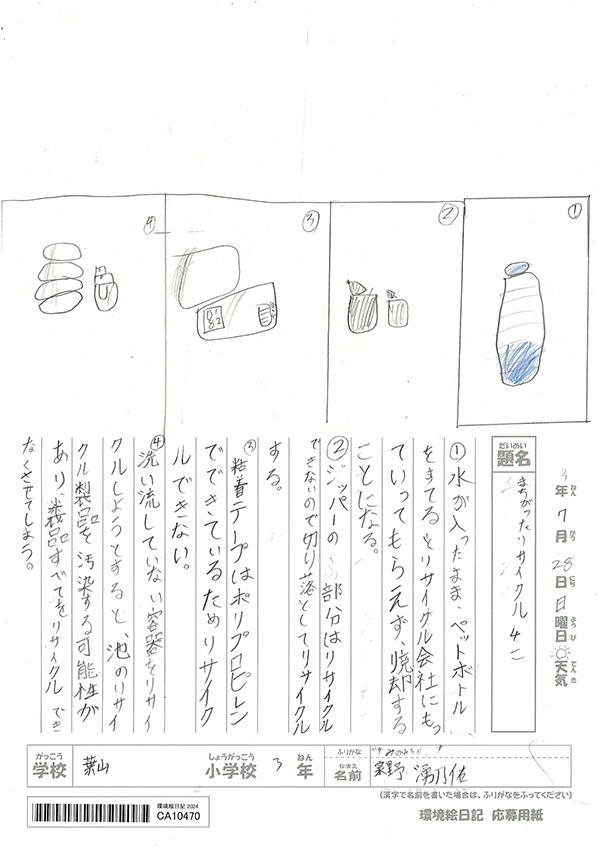 ④ ③ ② ①
だいめい
題名
まちがったリサイクル4こ
3年7月28日日曜日天気
ねん がつ にち ようび てんき
①水が入ったまま、ペットボトル
をすてるとリサイクル会社にもっ
ていってもらえず、焼却する
ことになる。
②ジッパーの部分はリサイクル
できないので切り落としてリサイクル
する。
③粘着テープはポリプロピレン
でできているためリサイク
ルできない。
④洗い流していない容器をリサイ
クルしようとすると、池のリサイ
クル製品を汚染する可能性が
あり、製品すべてをリサイクルでき
なくさせてしまう。
がっこう しょうがっこう ねん ふりがな
学校 葉山 小学校 3年
なまえ
名前
(漢字で名前を書いた場合は、ふりがなをふってください)
環境絵日記 2024
CA10470
環境絵日記 応募用紙